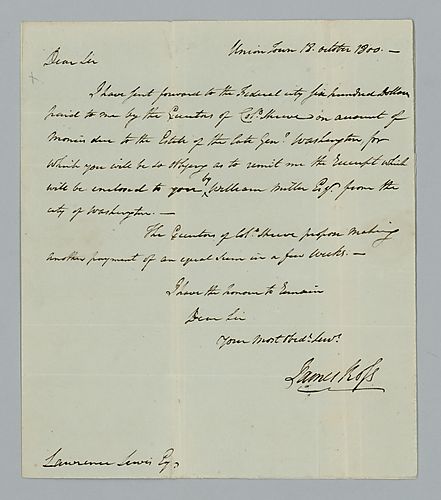 Union Town 18. october 1800. —
Dear Sir
I have sent forward to the Federal city Six hundred Dollars
paid to me by the Executors of Col.º Shreve on account of
Monies due to the Estate of the late Gen.l Washington, for
which you will be so obliging as to remit me the Receipt which
will be inclosed to you by William Miller Esq.r from the
city of Washington. —
The Executors of Col.º Shreve propose making
another payment of an equal sum in a few weeks. —
I have the honour to Remain
Dear Sir
Your Most Obed.t Serv.t
James Ross
Lawrence Lewis Esq.